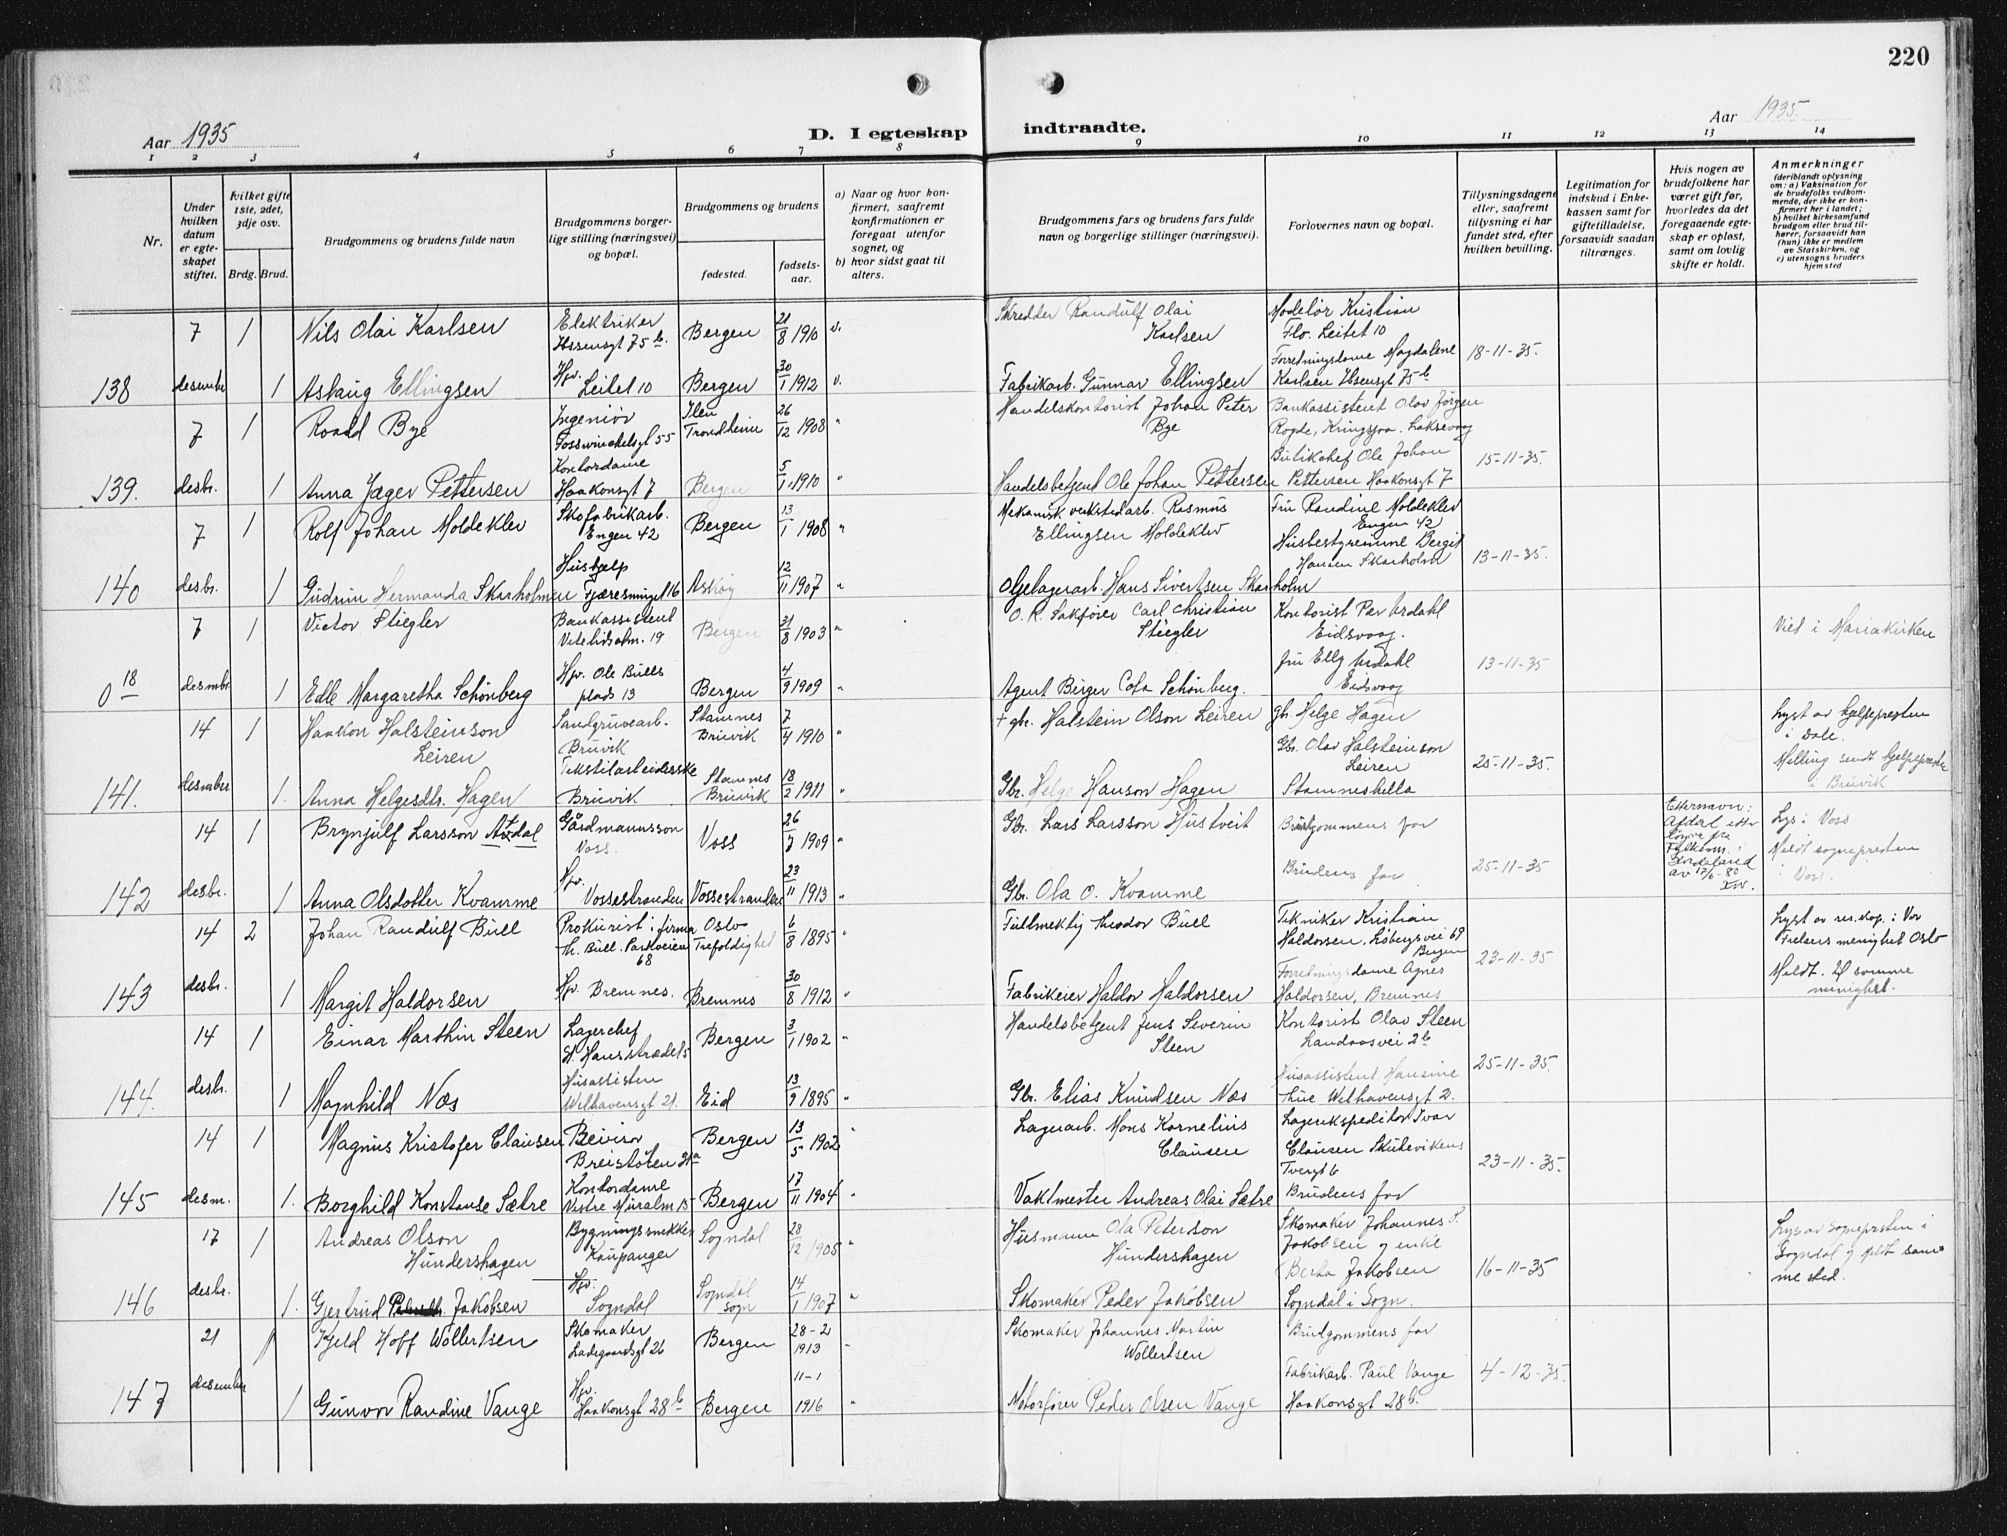 220
Aar 1935
D. I egteskap indtraadte.
Aar 1935.
1 2 3 4 5 6 7 8 9 10 11 12 13 14
Nr.
Under hvilken datum er egteskapet stiftet.
hvilket gifte 1ste, 2det, 3dje osv.
Brdg. Brud.
Brudgommens og brudens fulde navn
Brudgommens borgerlige stilling (næringsvei) og bopæl.
Brudgommens og brudens
fødested.
fødselsaar.
a) Naar og hvor konfirmert, saafremt konfirmationen er foregaat utenfor sognet, og
b) hvor sidst gaat til alters.
Brudgommens fars og brudens fars fulde navn og borgerlige stillinger (næringsvei).
Forlovernes navn og bopæl.
Tillysningsdagene eller, saafremt tillysning ei har fundet sted, efter hvilken bevilling.
Legitimation for indskud i Enkekassen samt for giftetilladelse, forsaavidt saadan tiltrænges.
Hvis nogen av brudefolkene har været gift før, hvorledes da det foregaaende egteskap er opløst, samt om lovlig skifte er holdt.
Anmerkninger
(deriblandt oplysning om: a) Vaksination for de brudefolks vedkommende, der ikke er konfirmert her i landet; b) hvilket kirkesamfund brudgom eller brud tilhører, forsaavidt han (hun) ikke er medlem av Statskirken, og c) utensogns bruders hjemsted
7 1 Nils Olai Karlsen Elektriker Ibsensgt 75 b. Bergen 21/8 1910 v. Skredder Randulf Olai Karlsen Modelør Kristian Flo. Leitet 10
138 desember 1 Aslaug Ellingsen Hjv. Leitet 10 Bergen 30/1 1912 v. Fabrikarb. Gunnar Ellingsen Forretningsdame Magdalene Karlsen Ibsensgt 75 b 18-11-35.
7 1 Roald Bye Ingeniør Fosswinckelsgt 55 Ilen Trondheim 26/12 1908 " Handelskontorist Johan Peter Bye Bankassistent Olav Jørgen Rogde, Kringsjaa. Laksevaag
139. desbr. 1 Anna Jæger Pettersen Kontordame Haakonsgt 7 Bergen 5/1 1910 " Handelsbetjent Ole Johan Pettersen Butikchef Ole Johan Pettersen Haakonsgt 7 15-11-35.
7 1 Rolf Johan Moldeklev Skofabrikarb. Engen 42 Bergen 13/1 1908 " Mekanisk verkstedarb. Rasmus Ellingsen Moldeklev Fru Randine Moldeklev Engen 42
140 desbr. 1 Gudrun Hermanda Skarholmen Hushjelp Fjæresmuget 16 Askøy 12/11 1907 " Oljelagerarb. Hans Sivertsen Skarholm Husbestyrerinne Bergit Hansen Skarholm 13-11-35.
7 1 Victor Stiegler Bankassistent Vetrlidsalm. 19 Bergen 31/8 1903 " O. R. Sakfører Carl Christian Stiegler Kontorist Per Urdahl Eidsvaag. Viet i Mariakirken
0 18 desmbr 1 Edle Margaretha Schönberg Hjv. Ole Bulls plads 13 Bergen 4/9 1909 " Agent Birger Cofa Schönberg. fru Elly Urdahl Eidsvaag 13-11-35
14 1 Haakon Halsteinson Leiren Sandgruvearb. Bruvik Stamnes Bruvik 7/4 1910 " + gbr. Halstein Olson Leiren gb. Helge Hagen Lyst av hjelpepresten i Dale.
141. desember 1. Anna Helgesdtr. Hagen Tekstilarbeiderske Bruvik Stamnes Bruvik 18/2 1911 " Gbr. Helge Hanson Hagen Gbr. Olav Halsteinson Leiren Stamneshella 25-11-35. Melding sendt hjelpeprestn i Bruvik
14 1 Brynjulf Larsson Afdal Gårdmannsson Voss. Voss 26/7 1909 " Gbr. Lars Larsson Hustveit Brudgommens far Etternavn: Afdal etter løyve fra Fylkesm. i Hordaland av 17/6-80 Lys i Voss
142 desbr. 1 Anna Olsdotter Kvamme Hjv. Vossestranden Vossestranden 23/11 1913 " Gbr. Ola O. Kvamme Brudens far 25-11-35 Meldt sognepresten i Voss.
14 2 Johan Randulf Bull Prokurist i firma Th. Bull. Parkveien 68 Oslo Trefoldighet 6/8 1895 " Fullmektig Theodor Bull Tekniker Kristian Haldorsen. Løbergsvei 69 Bergen Lyst av res. kap. i Vor Frelsers menighet Oslo
143 desbr. 1 Margit Haldorsen Hjv. Bremnes. Bremnes 30/8 1912 " Fabrikeier Haldor Haldorsen Forretningsdame Agnes Haldorsen, Bremnes 23-11-35 Meldt. til samme menighet.
14 1 Einar Marthin Steen Lagerchef St. Hansstrædet 5 Bergen 3/1 1902 " Handelsbetjent Jens Severin Steen Kontorist Olav Steen Landaasvei 2 b
144. desbr. 1 Magnhild Næs Husassisten Welhavensgt 21. Eid 13/9 1895 " Gbr. Elias Knudsen Næs Husassistent Hansine Thue Welhavensgt 2. 25-11-35.
14 1 Magnus Kristofer Clausen Revisor Breistølen 31 a Bergen 13/5 1902 " Lagerarb. Mons Kornelius Clausen Lagerekspeditør Ivar Clausen Skutevikens Tvergt 6
145 desm. 1. Borghild Konstanse Sætre Kontordame Vestre Muralm 15 Bergen 17/11 1904 " Vaktmester Andreas Olai Sætre Brudens far 23-11-35.
17 1 Andreas Olson Hundershagen Bygningssnekker Kaupanger Sogndal 28/12 1905 " Husmann Ola Peterson Hundershagen Skomaker Johannes P. Jakobsen og enke Lys av sognepresten i Sogndal og meldt samme sted.
146 desbr. 1. Gjertrud Jakobsen Hjv. Sogndal Sogndal Sogn 14/1 1907 " Skomaker Peder Jakobsen Berta Jakobsen Sogndal i Sogn. 16-11-35
21 1 Kjeld Hoff Wollertsen Skomaker Ladegaardsgt 26 Bergen 28-2 1913 " Skomaker Johannes Martin Wollertsen Brudgommens far
147 desember 1 Gunvor Randine Vange Hjv. Haakonsgt 28 b Bergen 11-1 1916 " Motorfører Peder Olsen Vange Fabrikarb. Paul Vange Haakonsgt 28 b. 4-12-35.